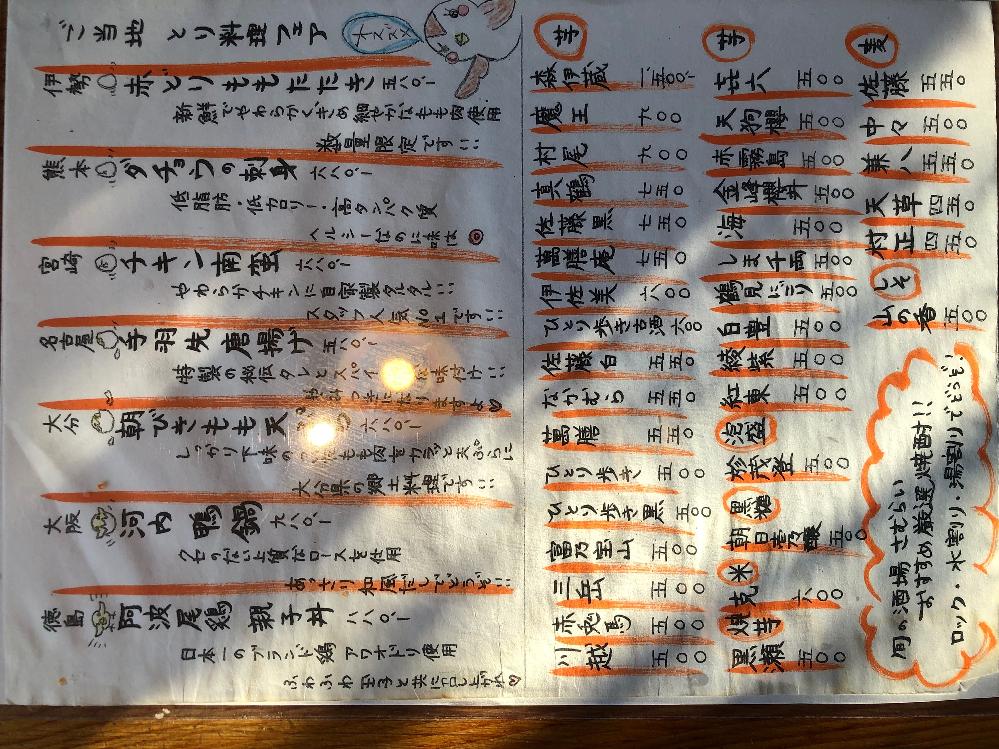 ご当地 とり料理フェア
オススメ
伊勢 赤どりももたたき 五八〇.-
新鮮でやわらかくきめ細やかなもも肉使用
数量限定です!!
熊本 ダチョウの刺身 六八〇.-
低脂肪・低カロリー・高タンパク質
ヘルシーなのに味は◎
宮崎 チキン南蛮 六八〇.-
やわらかチキンに自家製タルタル!!
スタッフ人気No.1です!!
名古屋 手羽先唐揚げ 五八〇.-
特製の秘伝タレとスパイ 味付け!!
つきになりますよ♡
大分 朝びきもも天 六八〇.-
しっかり下味の もも肉をカラッと天ぷらに
大分県の郷土料理です!!
大阪 河内鴨鍋 九八〇.-
クセのない上質なロースを使用
あっさり和風だしでどうぞ!!
徳島 阿波尾鶏親子丼 八八〇.-
日本一のブランド鶏 アワオドリ使用
ふわふわ玉子と共に召し上がれ♡
芋
森伊蔵 一、五〇〇.
魔王 九〇〇
村尾 九〇〇
真鶴 七五〇
佐藤黒 七五〇
萬膳庵 七五〇
伊佐美 六〇〇
ひとり歩き古酒 六〇〇
佐藤白 五五〇
なかむら 五五〇
萬膳 五五〇
ひとり歩き 五五〇
ひとり歩き黒 五〇〇
富乃宝山 五〇〇
三岳 五〇〇
赤兎馬 五〇〇
川越 五〇〇
芋
㐂六 五〇〇
天狗櫻 五〇〇
赤霧島 五〇〇
金峰櫻井 五〇〇
海 五〇〇
しま千両 五〇〇
鶴見にごり 五〇〇
白豊 五〇〇
綾紫 五〇〇
紅東 五〇〇
泡盛
珍我登 五〇〇
黒糖
朝日壱乃醸 五〇〇
米
鳥飼 六〇〇
焼芋
黒瀬 五〇〇
麦
佐藤 五五〇
中々 五〇〇
兼八 五五〇
天草 四五〇
村正 四五〇
しそ
山の香 五〇〇
旬の酒場さむらい
おすすめ厳選焼酎!!
ロック・水割り・湯割りでどうぞ!